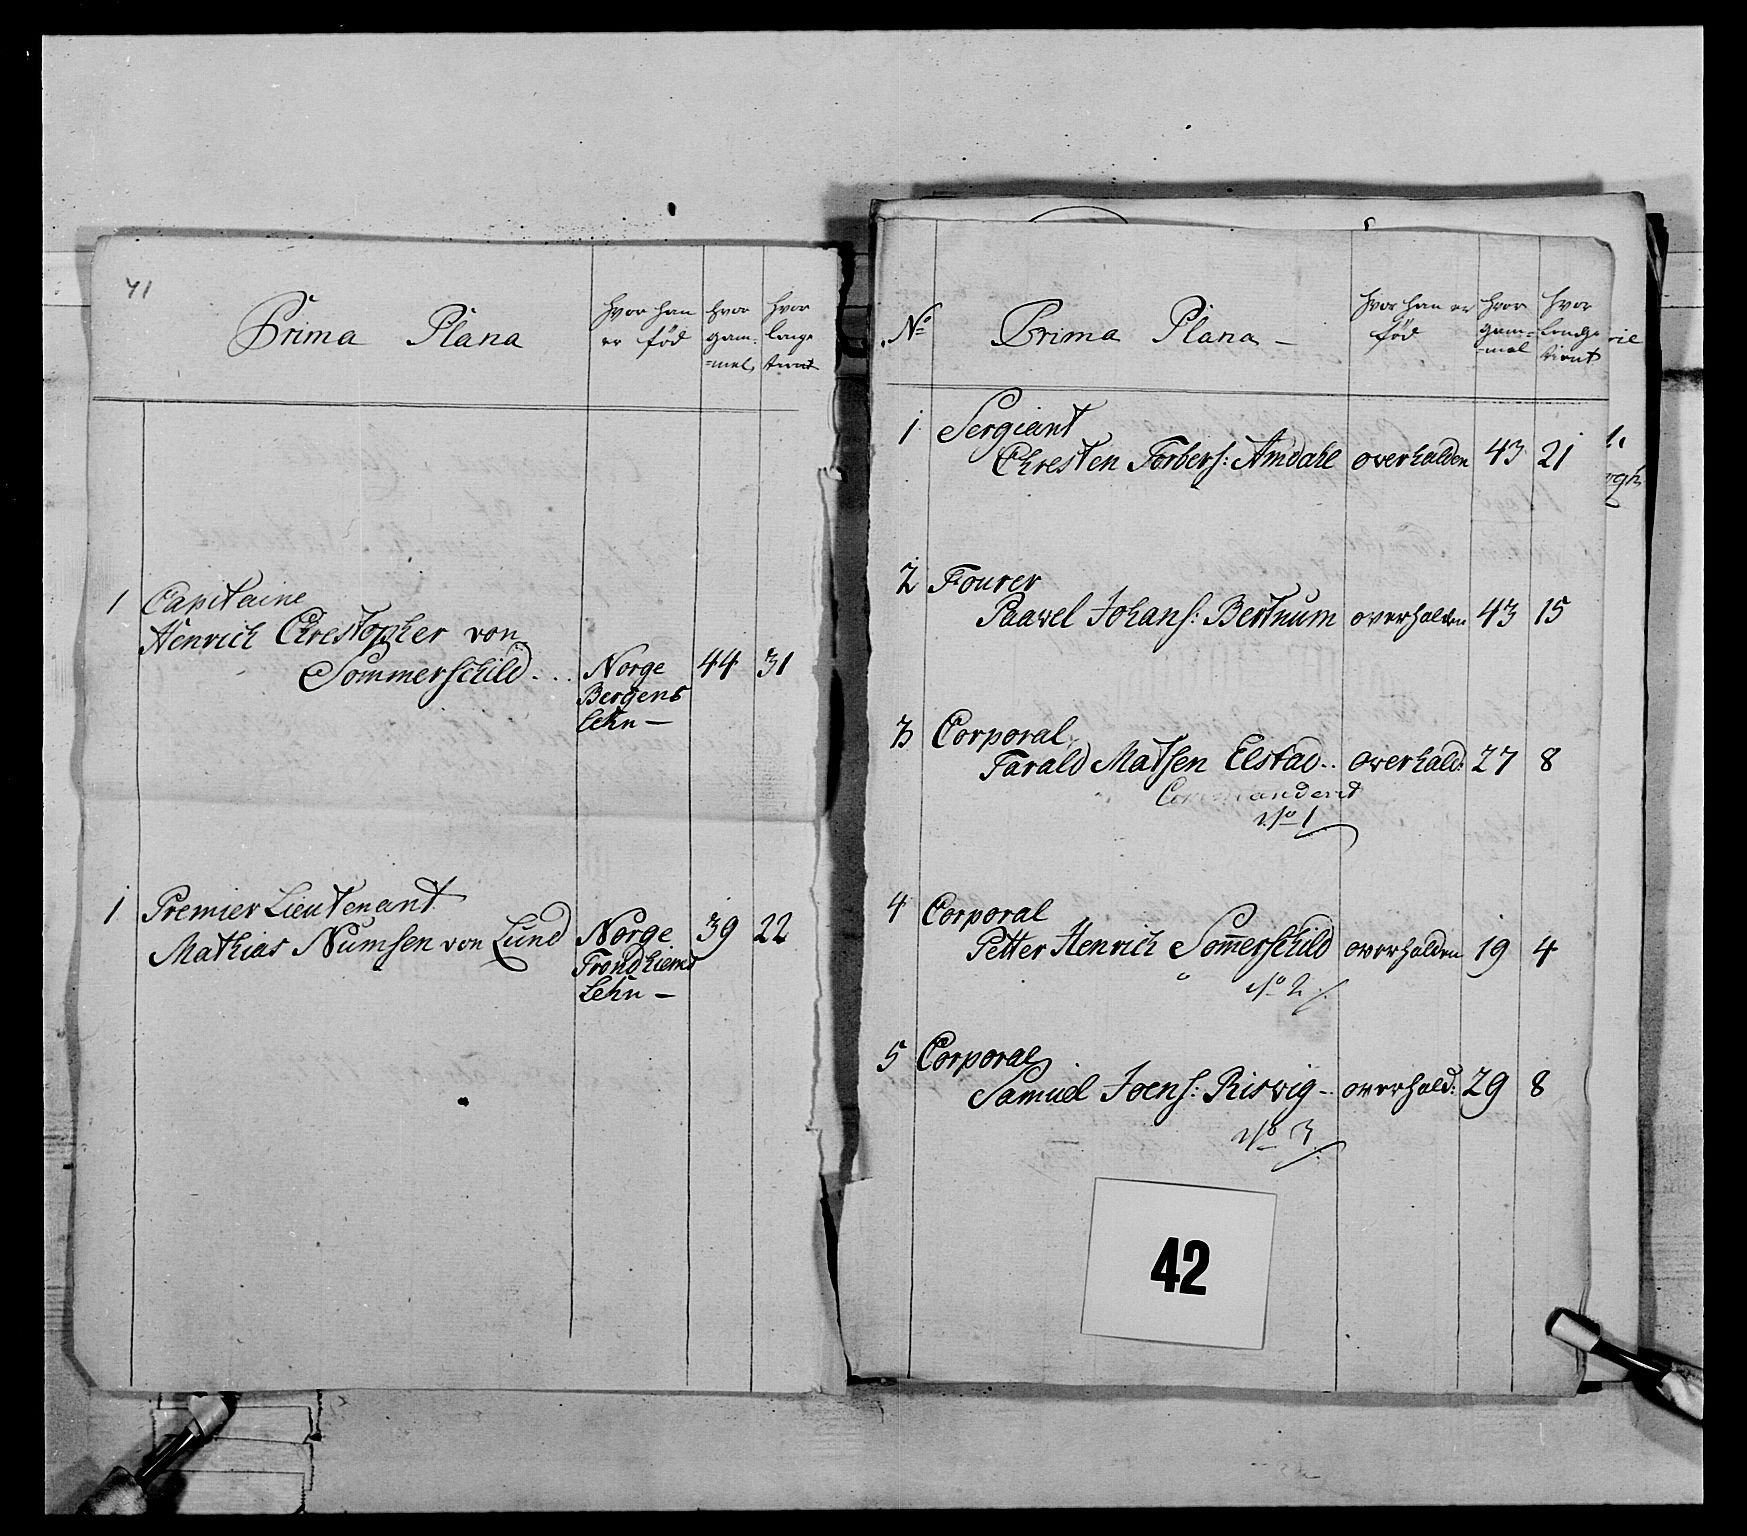 41
Prima Plana
hvor han er fød
hvor gam-
=mel
hvor
lenge
tient
1 Capitaine
Henrich Chrestopher von
Sommerschild - . . Norge 44 31
Bergens
Lehn —
1 Premier Lieutenant
Mathias Numsen von Lund Norge 39 22
Trondhiems
Lehn —
No Prima Plana —
hvor han er
fød
hvor
gam=
=mel
hvor
lenge
tient
1 Sergiant
Chresten Torbers: Amdahl overhalden 43 21
2 Fourer
Paavel Johans: Bertnum overhalden 43 15
3 Corporal
Tarald Matsen Elstad.. overhald: 27 8
Commanderit
No 1
4 Corporal
Petter Henrich Som̅erschild overhalden 19 4
No 2
5 Corporal
Samuel Joens: Risvig -. overhald: 29 8
No 3
42